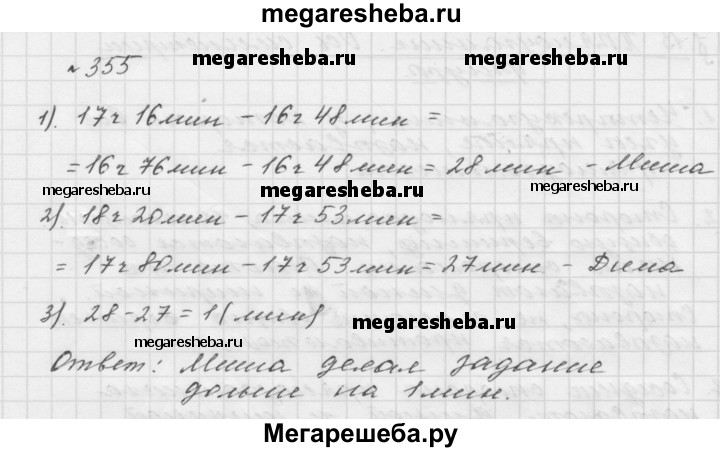 megaresheba.ru
№ 355
megaresheba.ru megaresheba.ru
1). 17ч 16мин – 16ч 48мин =
= 16ч 76мин – 16ч 48мин = 28мин – Миша
megaresheba.ru megaresheba.ru megaresheba.ru
2). 18ч 20мин – 17ч 53мин =
= 17ч 80мин – 17ч 53мин = 27мин – Дима
3). 28 – 27 = 1 (мин)
megaresheba.ru megaresheba.ru
Ответ: Миша делал задание
дольше на 1 мин.
Мегарешеба.ру